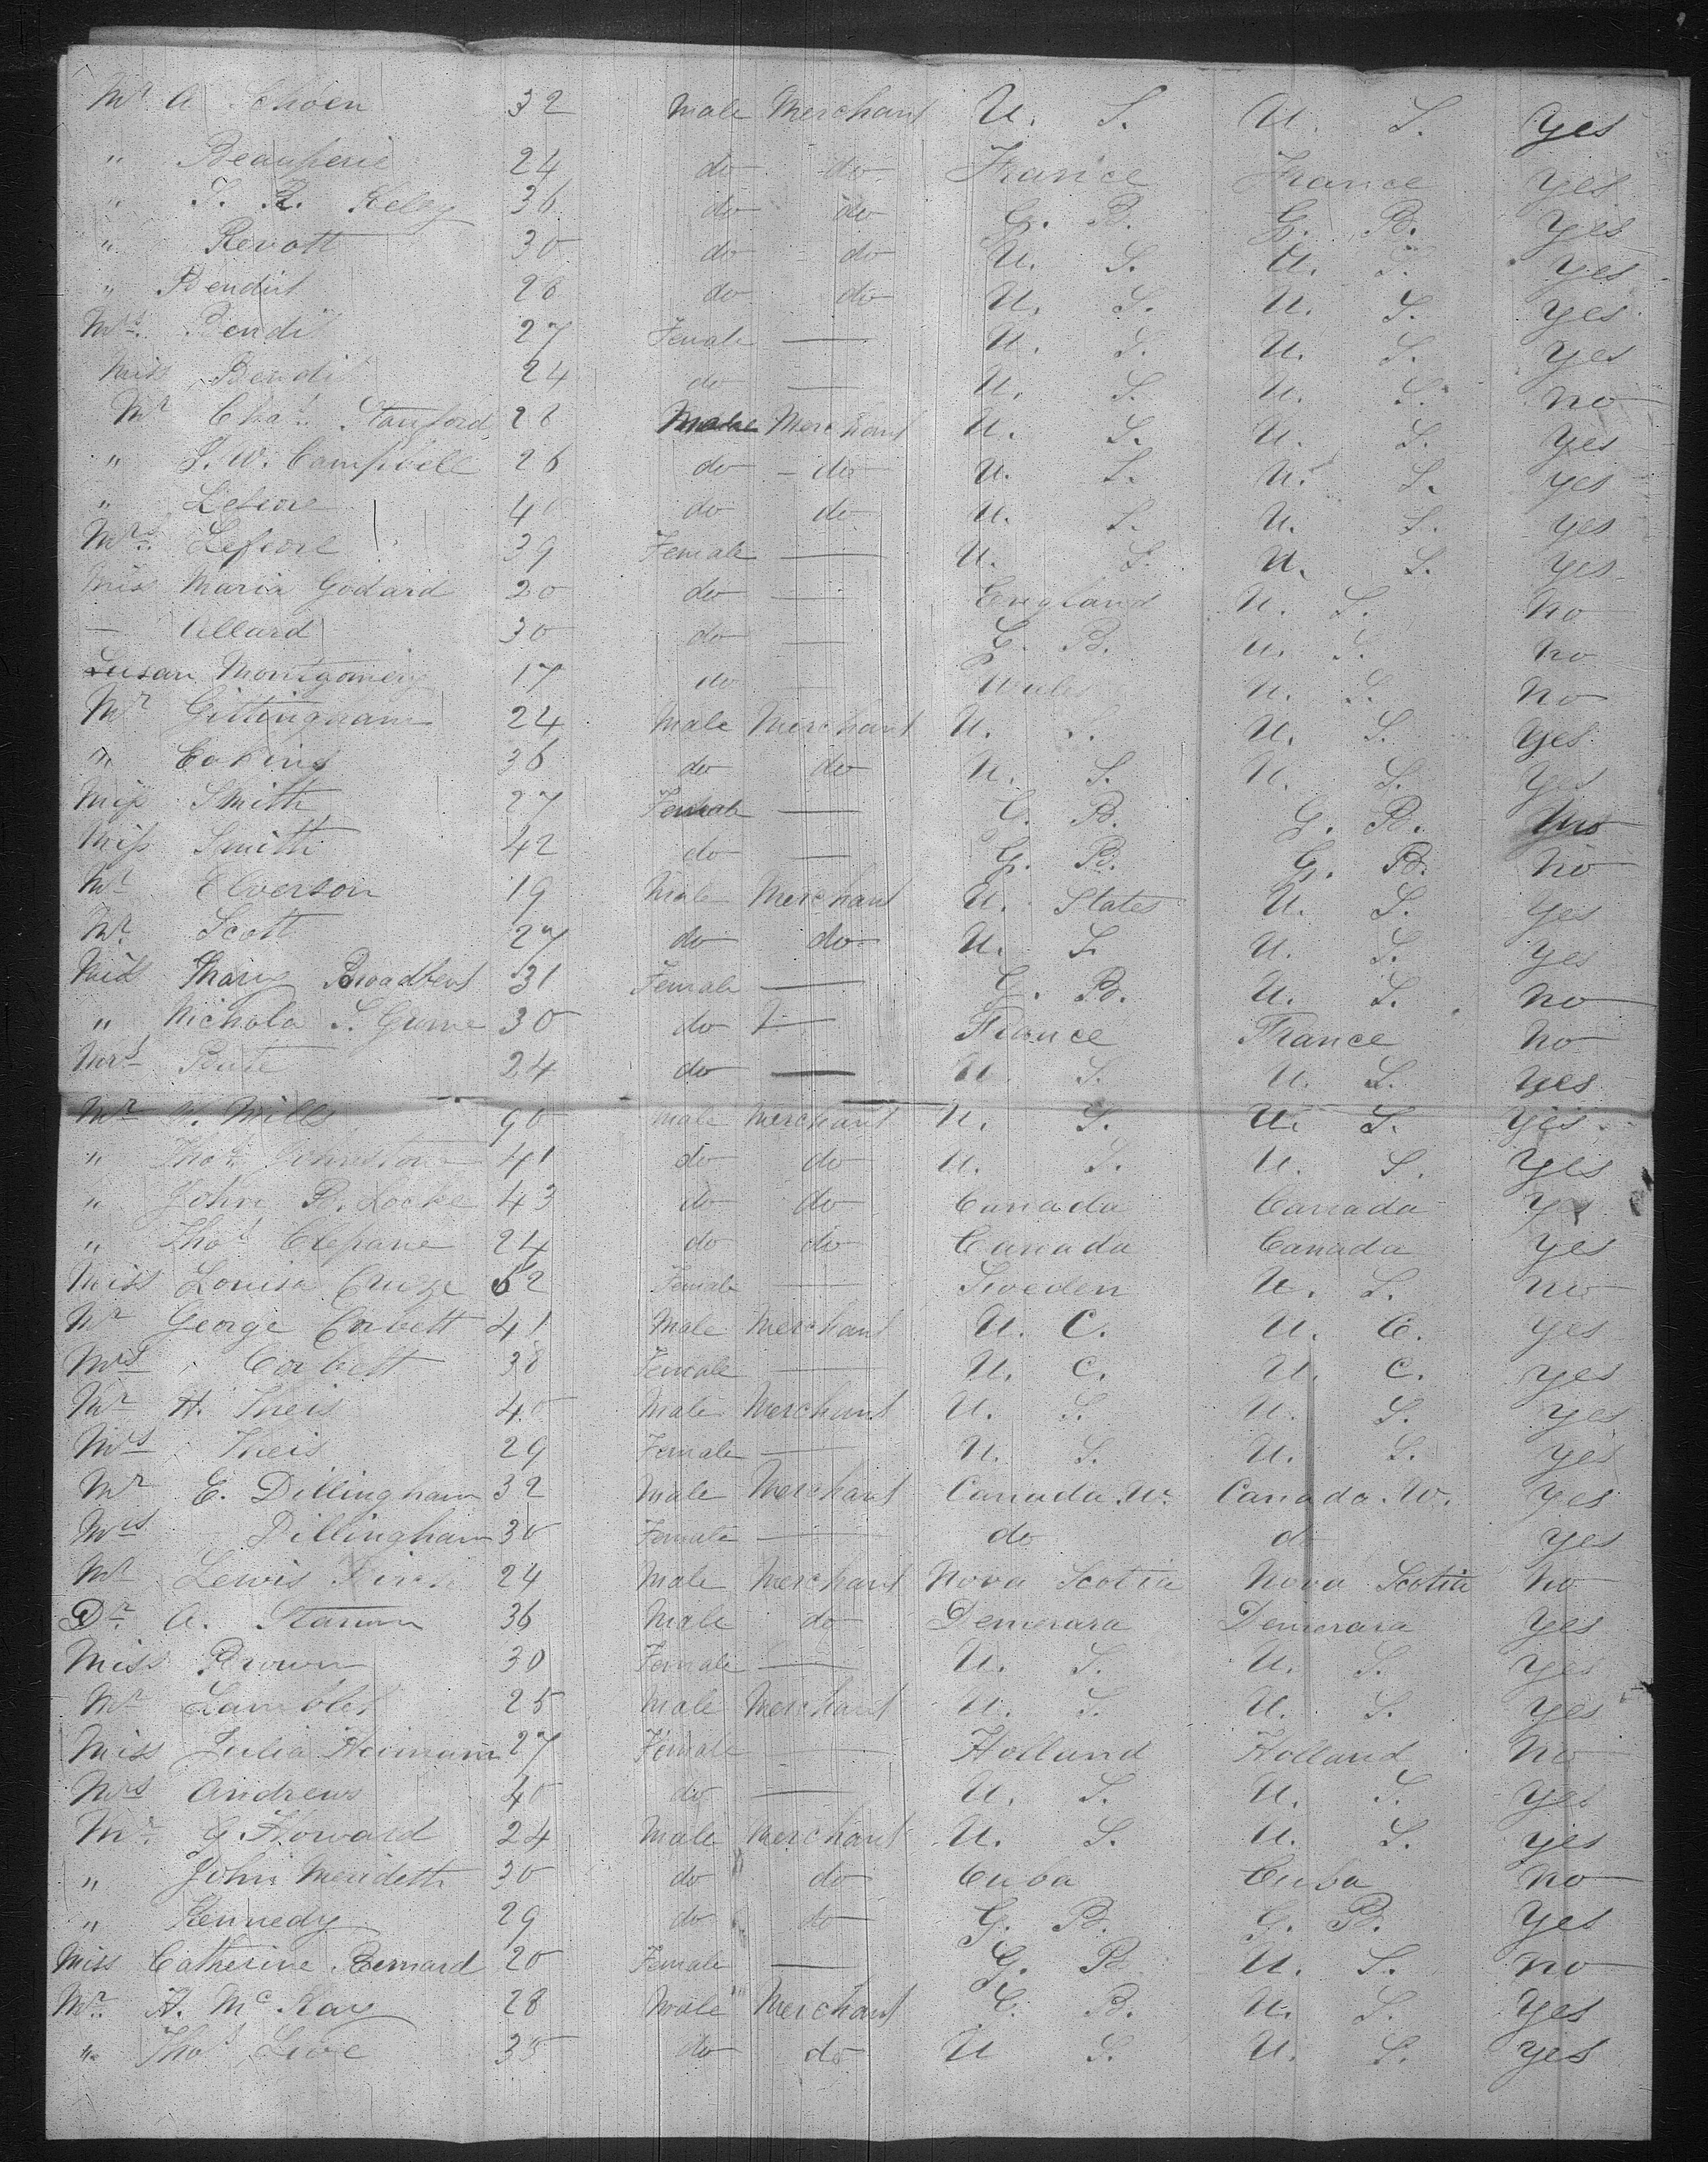 Mr A Schoen 32 Male Merchant U. S. U. S. Yes
" Beauperie 24 do do France France Yes
" T. R. Keley 36 do do G. B. G. B. Yes
" Revott 30 do do U. S. U. S. Yes
" Bendit 28 do do U. S. U. S. Yes
Mrs. Bendit 27 Female — U. S. U. S. Yes
Miss Bendit 24 do — U. S. U. S. No
Mr Chas. Stanford 28 Male Merchant U. S. U. S. Yes
" S. W. Campbell 26 do do U. S. U. S. Yes
" Lefevre 40 do do U. S. U. S. Yes
Mrs. Lefevre 39 Female — U. S. U. S. Yes
Miss Maria Godard 20 do — England U. S. No
— Allard 30 do — G. B. U. S. No
Susan Montgomery 17 do — Wales U. S. No
Mr Gittingham 24 Male Merchant U. S. U. S. Yes
" 36 do do U. S. U. S. Yes
Miss Smith 27 Female — G. B. G. B.
Miss Smith 42 do — G. B. G. B. No
Mr Elverson 19 Male Merchant U. States U. S. Yes
Mr. Scott 27 do do U. S. U. S. Yes
Miss Mary Broadbent 31 Female — G. B. U. S. No
" Nichola S. 30 do — France France No
Mrs 24 do — U. S. U. S. Yes
Mr W. Mills 90 Male Merchant U. S. U. S. Yes
" Thos. Johnston 41 do do U. S. U. S. Yes
" John B. Locke 43 do do Canada Canada Yes
" Thos. Clepane 24 do do Canada Canada Yes
Miss Louisa 52 Female — Sweden U. S. No
Mr George Corbett 41 Male Merchant U. C. U. C. Yes
Mrs Corbett 38 Female — U. C. U. C. Yes
Mr H. Theis 40 Male Merchant U. S. U. S. Yes
Mrs Theis 29 Female — U. S. U. S. Yes
Mr E. Dillingham 32 Male Merchant Canada. W. Canada. W. Yes
Mrs Dillingham 30 Female — do do Yes
Mr Lewis 24 Male Merchant Nova Scotia Nova Scotia No
Dr. A. Stamm 36 Male do Demerara Demerara Yes
Miss Brown 30 Female — U. S. U. S. Yes
Mr Lamblet 25 Male Merchant U. S. U. S. Yes
Miss Julia Heimann 27 Female — Holland Holland No
Mrs Andrews 40 do — U. S. U. S. Yes
Mr. G. Howard 24 Male Merchant U. S. U. S. Yes
" John Merideth 30 do do Cuba Cuba No
" Kennedy 29 do do G. B. G. B. Yes
Miss Catherine Bernard 20 Female — G. B. U. S. No
Mr. A. McKay 28 Male Merchant G. B. U. S. Yes
" Thos. 35 do do U S. U. S. Yes